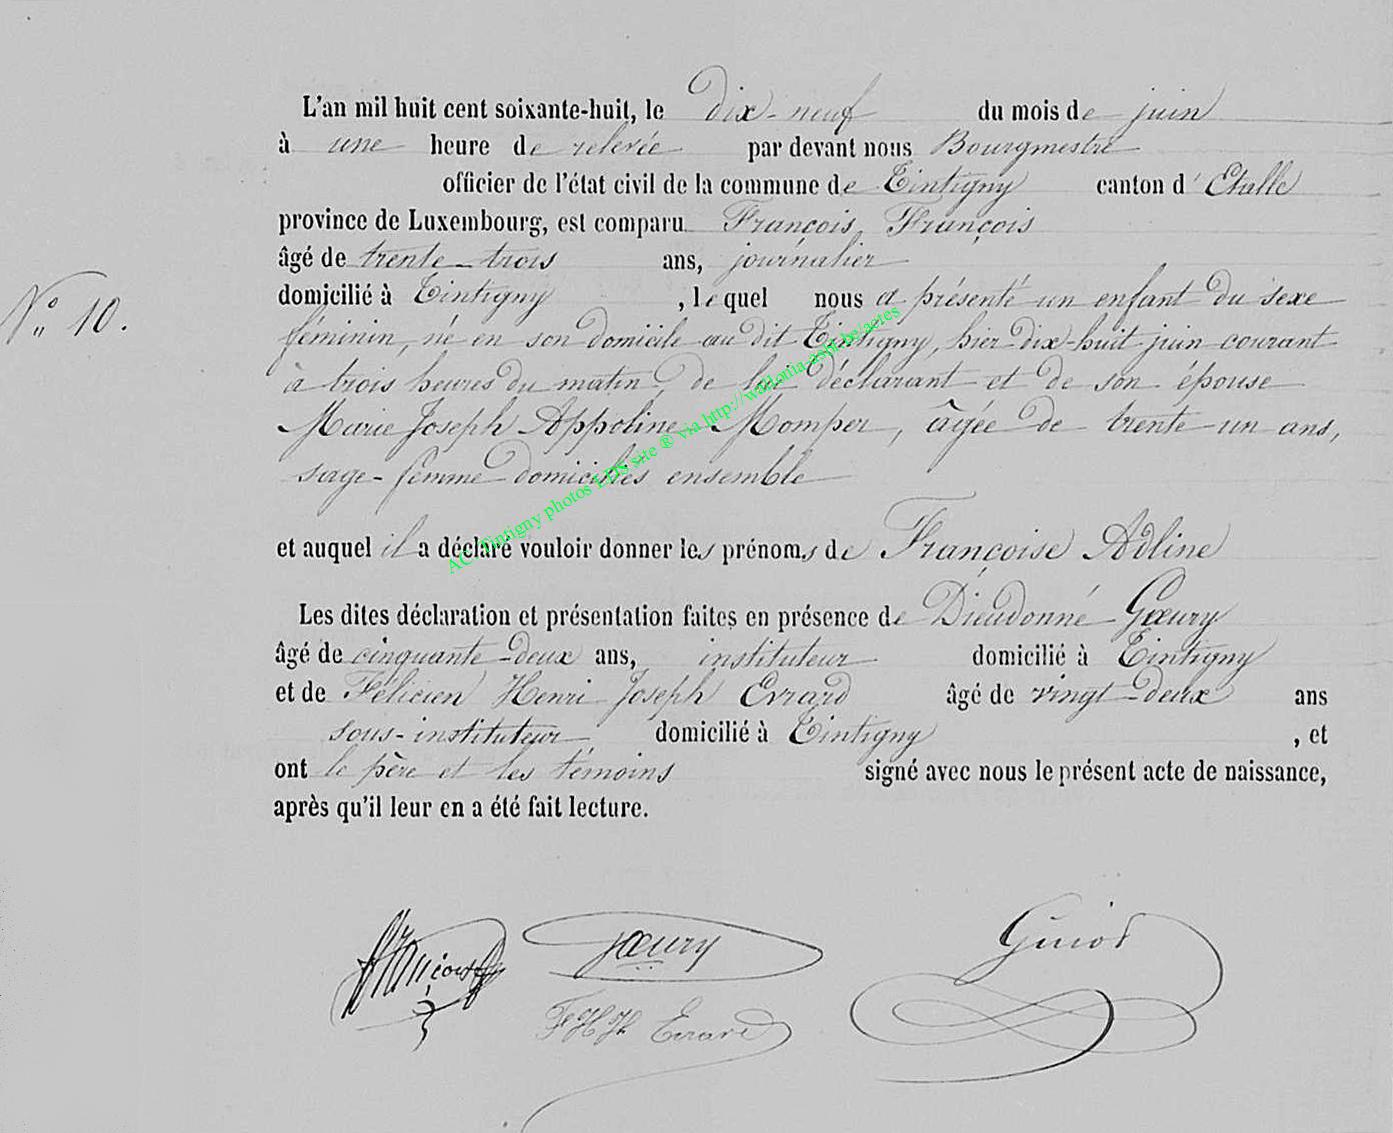 L'an mil huit cent soixante-huit, le dix-neuf du mois de juin
à une heure de relevée par devant nous Bourgmestre
officier de l'état civil de la commune de Tintigny canton d'Etalle
province de Luxembourg, est comparu François, François
âgé de trente-trois ans, journalier
domicilié à Tintigny, lequel nous a présenté un enfant du sexe
N° 10.
féminin, né en son domicile au dit Tintigny, hier dix-huit juin courant
à trois heures du matin, de lui déclarant et de son épouse
Marie Joseph Appoline Momper, âgée de trente un ans,
sage-femme domiciliés ensemble
et auquel il a déclaré vouloir donner les prénoms de Françoise Adline
Les dites déclaration et présentation faites en présence de Dieudonné Gœury
âgé de cinquante-deux ans, instituteur domicilié à Tintigny
et de Félicien Henri Joseph Evrard âgé de vingt-deux ans
sous-instituteur domicilié à Tintigny, et
ont le père et les témoins signé avec nous le présent acte de naissance,
après qu'il leur en a été fait lecture.
François Gœury Guiot
FHJh Evrard
AC Tintigny photos LDS site ® via http://wallonia-asbl.be/actes